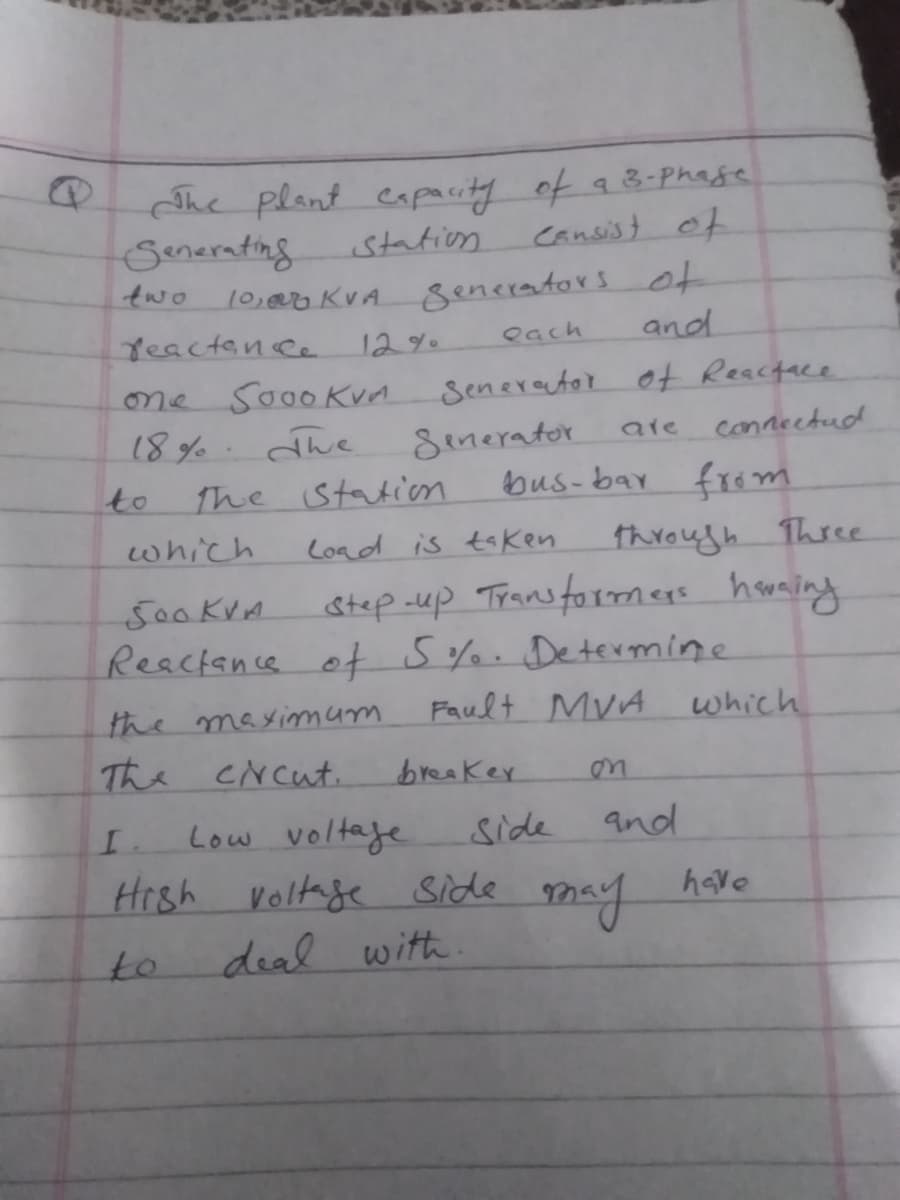 Q The plant capacity of a 3-phase
Generating Station consist of
two 10,000 KVA generators of
reactance 12% each and
one 5000 KVA generator of Reactace
18%. The Generator are connected
to The Station bus-bar from
which load is taken through Three
500 KVA step-up Transformers havaing
Reactance of 5%. Determine
the maximum Fault MVA which
The circut. breaker on
I. Low voltage side and
High voltage side may have
to deal with.